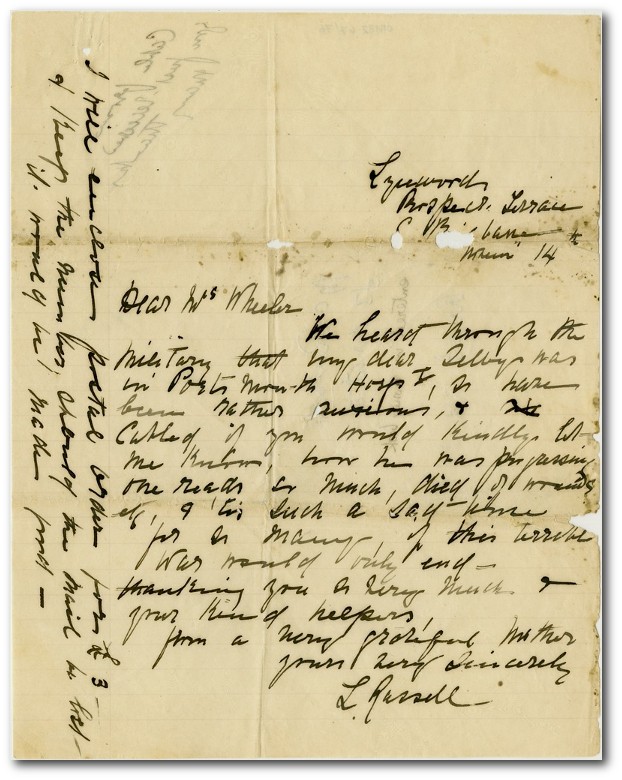 Lynwood
Prospect Terrace
S. Brisbane
14th
Dear Mrs Wheeler
We heard through the
Military that my dear Selby was
in Portsmouth Hospl, so have
been rather anxious, &
Cabled if you would kindly let
me know, how he was progressing
one reads so much, died of wounds
etc, & tis such a sad time
for so many, if this terrible
War would only end—
thanking you so very much &
your kind helpers
from a very grateful Mother
yours very Sincerely
L. Russell—
I will enclose postal order for £3—
& keep the number should the mail be lost—
it would be made good—